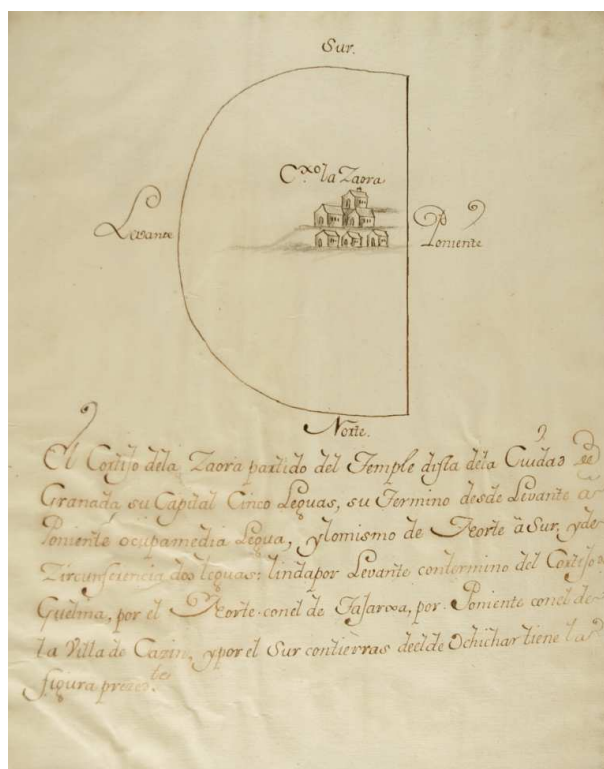 Sur.
C.xo la Zaora
Levante
Poniente
Norte.
El Cortijo dela Zaora partido del Temple dista dela Ciudad de
Granada su Capital Cinco Leguas, su Termino desde Levante â
Poniente ocupamedia Legua, ylomismo de Norte â Sur, yde
Zircunferencia dos leguas: lindapor Levante contermino del Cortijo de
Guelma, por el Norte conel de Tajaroxa, por Poniente conel de
la Villa de Cazin, ypor el Sur contierras deelde Ochichar tiene la
figura presente